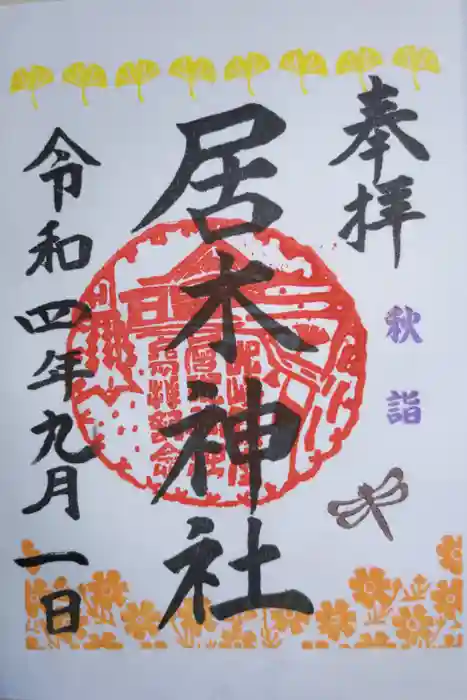 奉拝
秋詣
居木神社
令和四年九月一日